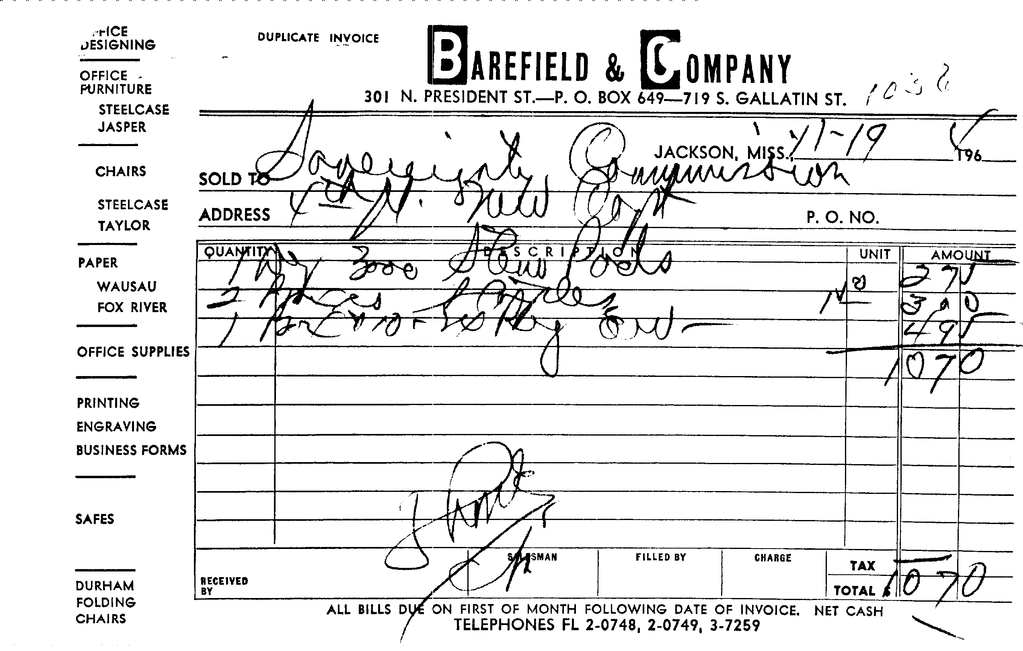 OFFICE DESIGNING
OFFICE FURNITURE
STEELCASE
JASPER
CHAIRS
STEELCASE
TAYLOR
PAPER
WAUSAU
FOX RIVER
OFFICE SUPPLIES
PRINTING
ENGRAVING
BUSINESS FORMS
SAFES
DURHAM
FOLDING
CHAIRS
DUPLICATE INVOICE
BAREFIELD & COMPANY
301 N. PRESIDENT ST.—P. O. BOX 649—719 S. GALLATIN ST.
JACKSON, MISS., 11-19 196
SOLD TO Sovereignty Commission
ADDRESS 4th fl. New Capt
P. O. NO.
QUANTITY DESCRIPTION UNIT AMOUNT
1 3000 Pads 2 75
2 Boxes Staples 1 50 3 00
1 4 95
10 70
SALESMAN FILLED BY CHARGE TAX
RECEIVED BY
TOTAL $ 10 70
ALL BILLS DUE ON FIRST OF MONTH FOLLOWING DATE OF INVOICE. NET CASH
TELEPHONES FL 2-0748, 2-0749, 3-7259